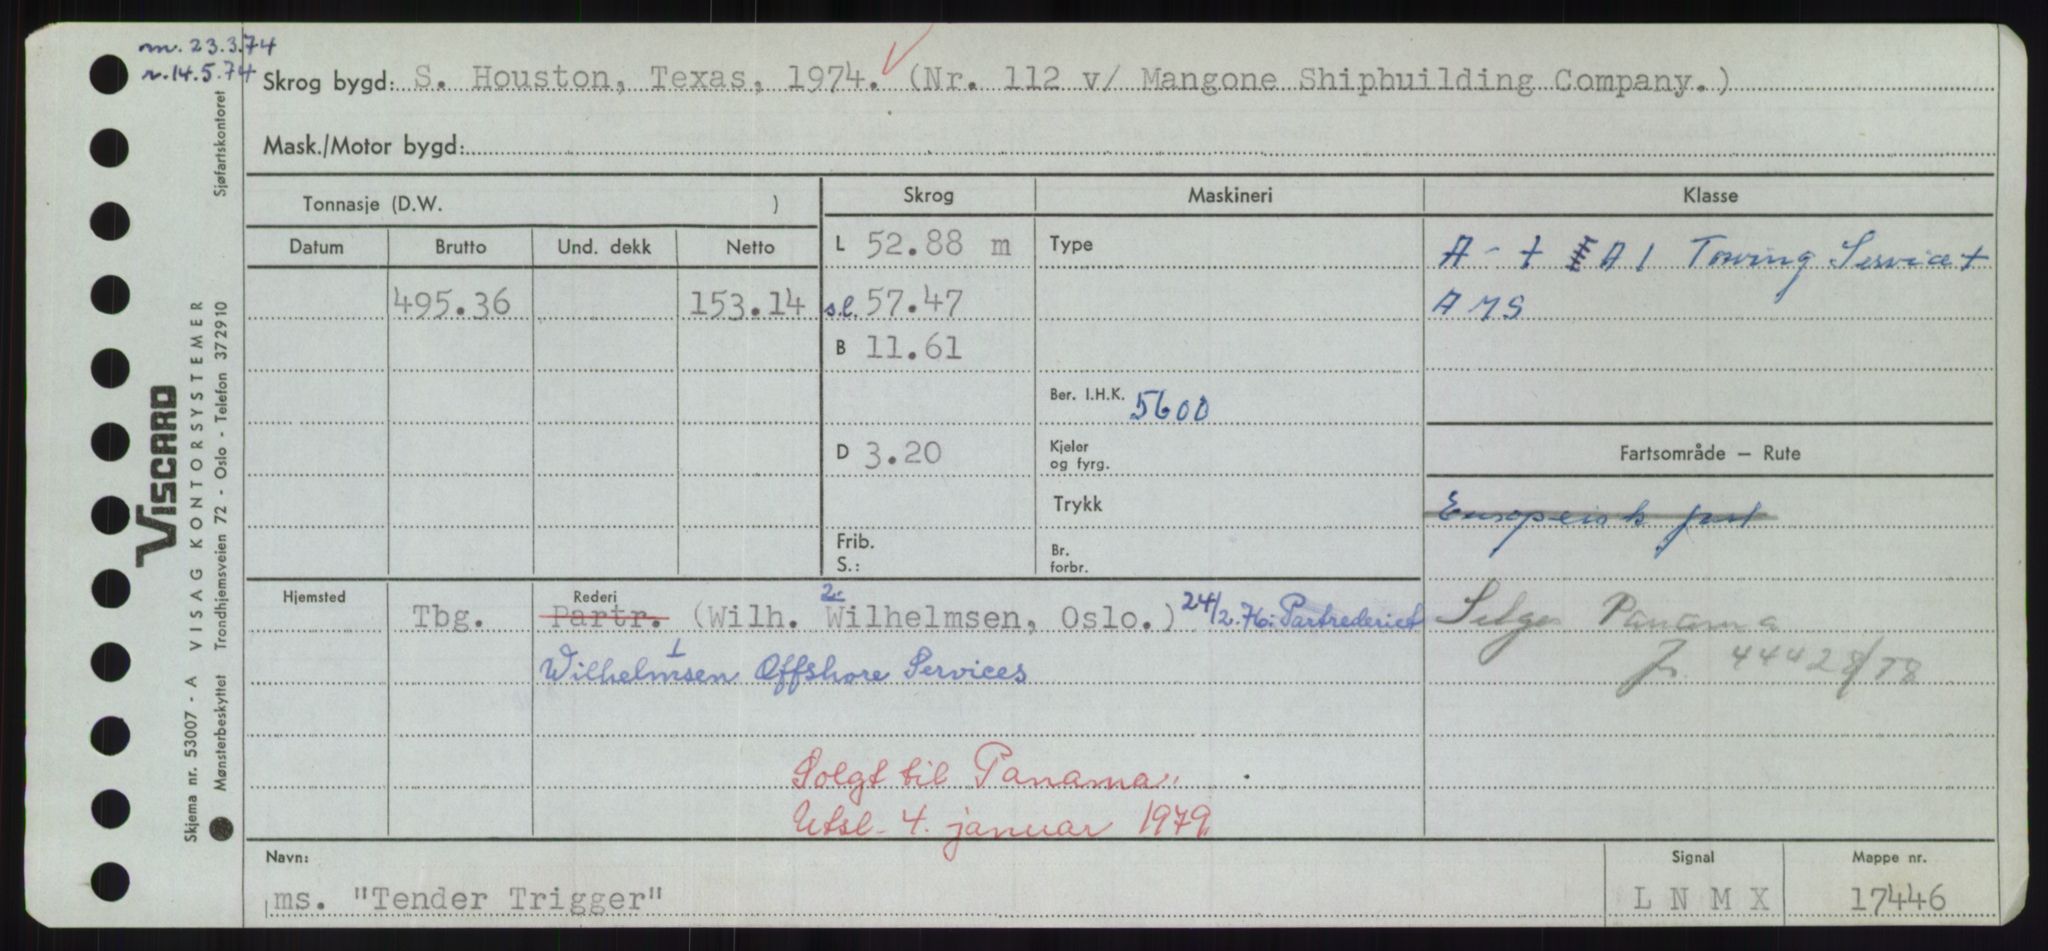 m. 23.3.74
r. 14.5.74
Skrog bygd: S. Houston, Texas, 1974. (Nr. 112 v/ Mangone Shipbuilding Company.)
Mask./Motor bygd:
Tonnasje (D.W. )
Skrog Maskineri Klasse
Datum Brutto Und. dekk Netto
L 52.88 m Type A - + A 1 Towing Service +
495.36 153.14 s.l. 57.47 AMS
B 11.61
Ber. I.H.K. 5600
D 3.20 Kjeler og fyrg. Fartsområde – Rute
Trykk Europeisk fart
Frib.
S.: Br. forbr.
Hjemsted Rederi
Tbg. Partr. (Wilh. 2. Wilhelmsen, Oslo.) 24/2.76: Partrederiet Selges Panama
1
Wilhelmsen Offshore Services J. 44428/78
Solgt til Panama.
Utsl. 4. januar 1979.
Navn: Signal Mappe nr.
ms. "Tender Trigger" L N M X 17446
VISCARD
Skjema nr. 53007 - A VISAG KONTORSYSTEMER
Mønsterbeskyttet Trondhjemsveien 72 - Oslo - Telefon 372910 Sjøfartskontoret